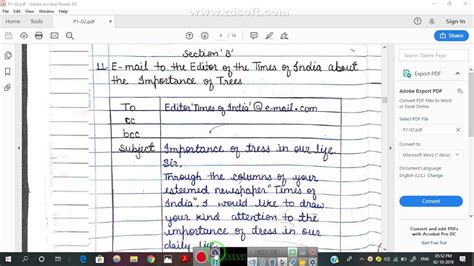 P1-02.pdf - Adobe Acrobat Reader DC
File Edit View Window Help
www.zdsoft.com
Home Tools P1-02.pdf x
Sign In
4 / 14
Share
Section 'B'
11. E-mail to the Editor of the Times of India about
the Importance of Trees
To Editor'Times of India'@e-mail.com
cc
bcc
Subject Importance of tress in our life
Sir,
Through the columns of your
esteemed newspaper "Times of
India", I would like to draw
your kind attention to the
importance of tress in our
daily life.
Search 'Delete Page'
Export PDF
Adobe Export PDF
Convert PDF Files to Word
or Excel Online
Select PDF File
P1-02.pdf
Convert to
Microsoft Word (*.docx)
Document Language:
English (U.S.) Change
Convert
Convert and edit PDFs
with Acrobat Pro DC
Start Free Trial
05:52 PM
02-10-2019